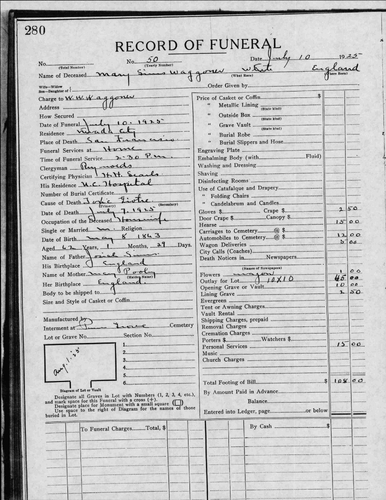 280
RECORD OF FUNERAL
No. No. 50 Date July 10 1925
(Total Number) (Yearly Number)
Name of Deceased Mary Simms Waggoner White England
Wife—Widow
Son—Daughter of Order Given by
Charge to W.W. Waggoner
Address
How Secured
Date of Funeral July 10, 1925
Residence Nevada City
Place of Death San Francisco
Funeral Services at Home
Time of Funeral Service 2-30 P.M.
Clergyman Reynolds
Certifying Physician H.H. Searls
His Residence U.C. Hospital
Number of Burial Certificate
Cause of Death Toxic Goitre
Date of Death July 7, 1925
Occupation of the Deceased Housewife
Single or Married M. Religion
Date of Birth May 8 1863
Aged 62 Years, 1 Months, 29 Days
Name of Father Josiah Simms
His Birthplace England
Name of Mother Mary Pooly
Her Birthplace England
Body to be shipped to
Size and Style of Casket or Coffin
Manufactured by
Interment at Pine Grove Cemetery
Lot or Grave No. Section No.
1
2
3
4
5
6
7
Diagram of Lot or Vault
Designate all Graves in Lot with Numbers (1, 2, 3, 4, etc.) and mark space for this Funeral with a cross (+).
Designate place for Monument with a small square
Use space to right of Diagram for the names of those buried in Lot.
Price of Casket or Coffin
" Metallic Lining
" Outside Box
" Grave Vault
" Burial Robe
" Burial Slippers and Hose
Engraving Plate
Embalming Body (with Fluid)
Washing and Dressing
Shaving
Disinfecting Rooms
Use of Catafalque and Drapery
" Folding Chairs
" Candelabrum and Candles
Gloves $ Crape $ 2 50
Door Crape $ Canopy $
Hearse 15 00
Carriages to Cemetery @ $
Automobiles to Cemetery @ $ 12 00
Wagon Deliveries 5 00
City Calls (Coaches)
Death Notices in Newspapers
(Names of Newspapers)
Flowers 1 00
Outlay for Lot 10 X 10 45 00
Opening Grave or Vault 10 00
Lining Grave 2 50
Evergreen
Tent or Awning Charges
Vault Rental
Shipping Charges, prepaid
Removal Charges
Cremation Charges
Porters $ Watchers $
Personal Services 15 00
Music
Church Charges
Total Footing of Bill 108 00
By Amount Paid in Advance
Balance
Entered into Ledger, page or below
To Funeral Charges Total, $ By Cash $